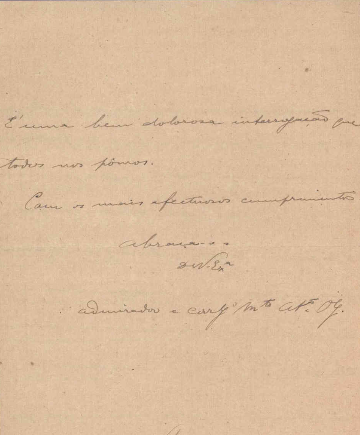 É uma bem dolorosa interrogação que
todos nos pômos.
Com os mais afectuosos cumprimentos
abraça-o o
de V. Ex.ª
admirador e Mto At.